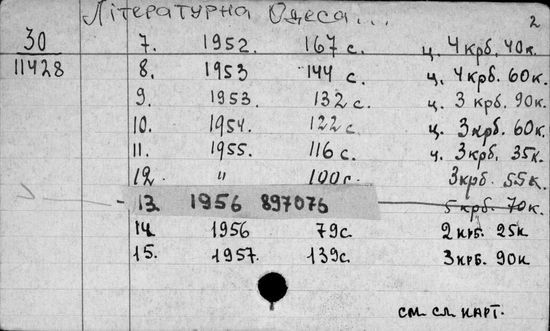 Літературна Одеса... 2
30 7. 1952. 167 с. ц. 4 крб. 40к.
11428 8. 1953 144 с. ц. 4 крб. 60к.
9. 1953. 132 с. ц. 3 крб. 90к.
10. 1954. 122 с. ц. 3 крб. 60к.
11. 1955. 116 с. ц. 3 крб. 35к.
12. " 100с. 3крб. 55к.
- 13 1956 897076 5 крб. 70к.
14. 1956 79с. 2 крб. 25к
15. 1957. 139с. 3крб. 90к
см. сл. карт.